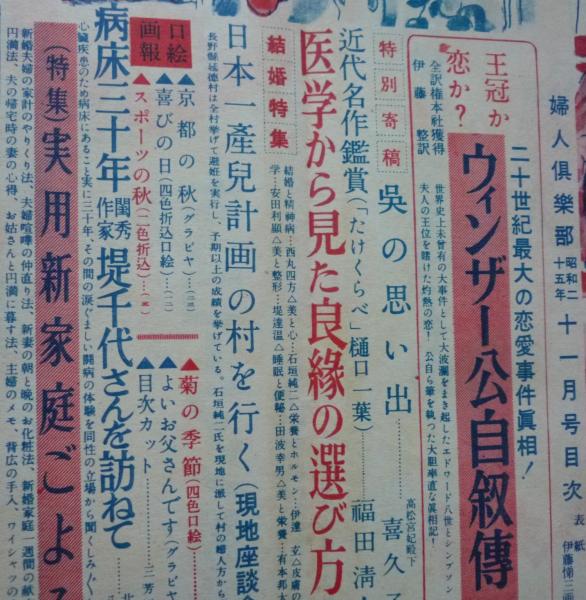 婦人倶樂部 昭和二十五年 十一月号目次
表紙
伊藤悌三画
二十世紀最大の恋愛事件眞相！
王冠か恋か？
ウィンザー公自叙傳
全訳権本社獲得
伊藤 整訳
世界史上未曾有の大事件として大波瀾をまき起したエドワード八世とシンプソン
夫人の王位を賭けた灼熱の恋！ 公自ら筆を執った大胆率直な眞相記！
特別寄稿
呉の思い出
高松宮妃殿下
喜久子
近代名作鑑賞（「たけくらべ」樋口一葉）
福田清
結婚特集
医学から見た良縁の選び方
結婚と精神病…西丸四方△美と心…石垣純二△栄養とホルモン…伊達 △皮膚の
学…安田利顕△美と整形…堤達温△睡眠と便秘…田波幸男△美と栄養…有本邦太
日本一産兒計画の村を行く（現地座談会
長野縣延徳村は全村挙げて避妊を実行し、予期以上の成績を挙げている。石垣純二氏を現地に派して村の婦人方から
口絵画報
▲京都の秋（グラビヤ）
▲喜びの日（四色折込口絵）
▲スポーツの秋（二色折込）
▲菊の季節（四色口絵）
▲よいお父さんです（グラビヤ
▲目次カット
三芳
病床三十年 閨秀作家 堤千代さんを訪ねて
心臓疾患のため病床にあること実に三十年、その間の涙ぐましい闘病の体験を同性の立場から聞くしみ
（特集）実用新家庭ごよみ
新婚夫婦の家計のやりくり法、夫婦喧嘩の仲直り法、新妻の朝と晩のお化粧法、新婚家庭一週間の献
円満法、夫の帰宅時の妻の心得、お姑さんと円満に暮す法、主婦のメモ、背広の手入、ワイシャツの